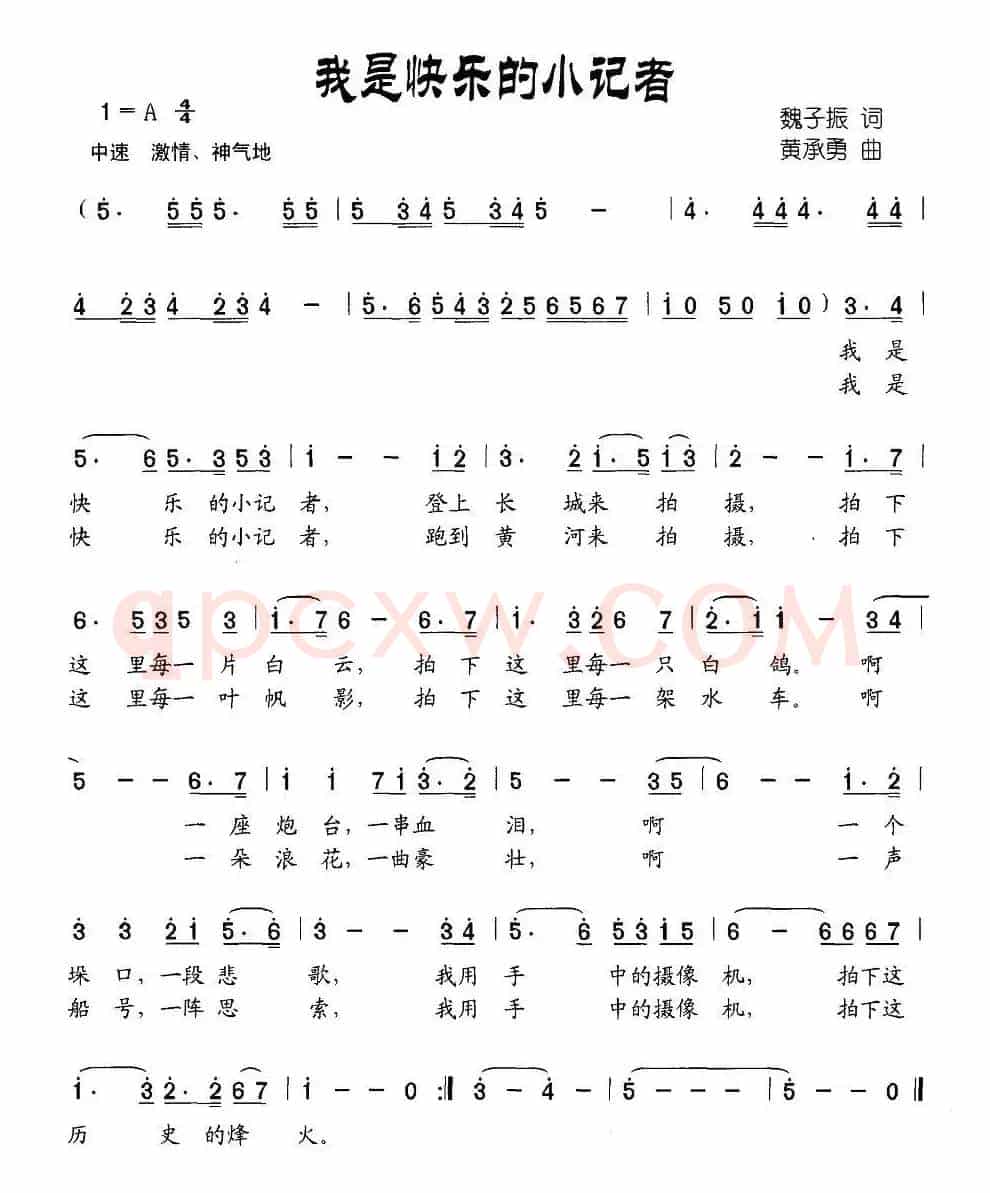 我是快乐的小记者
1=A 4/4
魏子振 词
中速 激情、神气地
黄承勇 曲
(5̇. 5̇5̇5̇. 5̇5̇|5̇ 3̇4̇5̇ 3̇4̇5̇ - |4̇. 4̇4̇4̇. 4̇4̇|
4̇ 2̇3̇4̇ 2̇3̇4̇ - |5̇. 6̇5̇4̇3̇256567|1̇0 50 1̇0) 3̇. 4̇|
我 是
我 是
5̇. 6̇5̇. 3̇5̇3̇|1̇ - - 1̇2̇|3̇. 2̇1̇. 51̇3̇|2̇ - - 1̇. 7|
快 乐 的小记 者, 登上 长 城来 拍 摄, 拍 下
快 乐 的小记 者, 跑到 黄 河来 拍 摄, 拍 下
6. 535 3|1̇. 76 - 6. 7|1̇. 3̇2̇6 7|2̇. 1̇1̇ - 34
这 里每一 片 白 云, 拍 下 这 里每一 只 白 鸽。 啊
这 里每一 叶 帆 影, 拍 下 这 里每一 架 水 车。 啊
5 - - 6. 7|1̇ 1̇ 71̇3̇. 2̇|5 - - 35|6 - - 1̇. 2̇|
一 座 炮 台,一串血 泪, 啊 一 个
一 朵 浪 花,一曲豪 壮, 啊 一 声
3̇ 3̇ 2̇1̇ 5̇. 6̇|3̇ - - 3̇4̇|5̇. 6̇5̇3̇1̇5|6 - 6667|
垛 口,一段 悲 歌, 我用 手 中的摄像 机, 拍下这
船 号,一阵 思 索, 我用 手 中的摄像 机, 拍下这
1̇. 3̇2̇. 2̇67|1̇ - - 0 :‖3̇ - 4̇ - |5̇ - - - |5̇ - - 0‖
历 史 的烽 火。
qpcxw.com